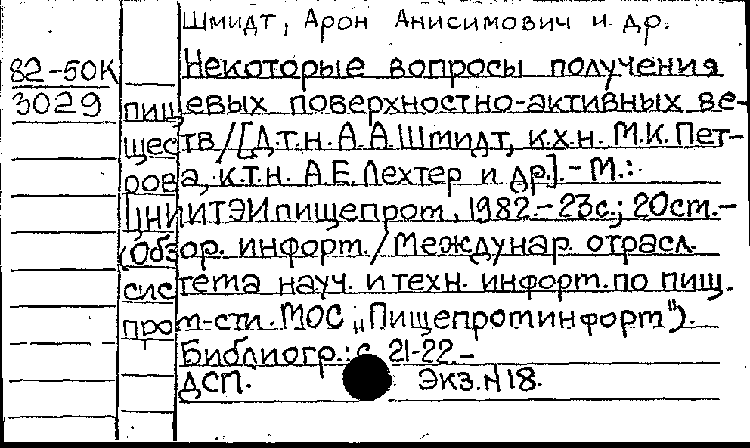 Шмидт, Арон Анисимович и др.
82-50К Некоторые вопросы получения
3029 пищевых поверхностно-активных ве-
ществ/[Д.т.н. А.А.Шмидт, к.х.н. М.К. Пет-
рова, к.т.н. А.Е. Лехтер и др.].- М.:
ЦНИИТЭИпищепром, 1982.- 23с.; 20см.-
(Обзор. информ./Междунар. отрасл.
система науч. и техн. информ. по пищ.
пром-сти. МОС „Пищепроминформ").
Библиогр.: с. 21-22.-
ДСП. Экз.N18.